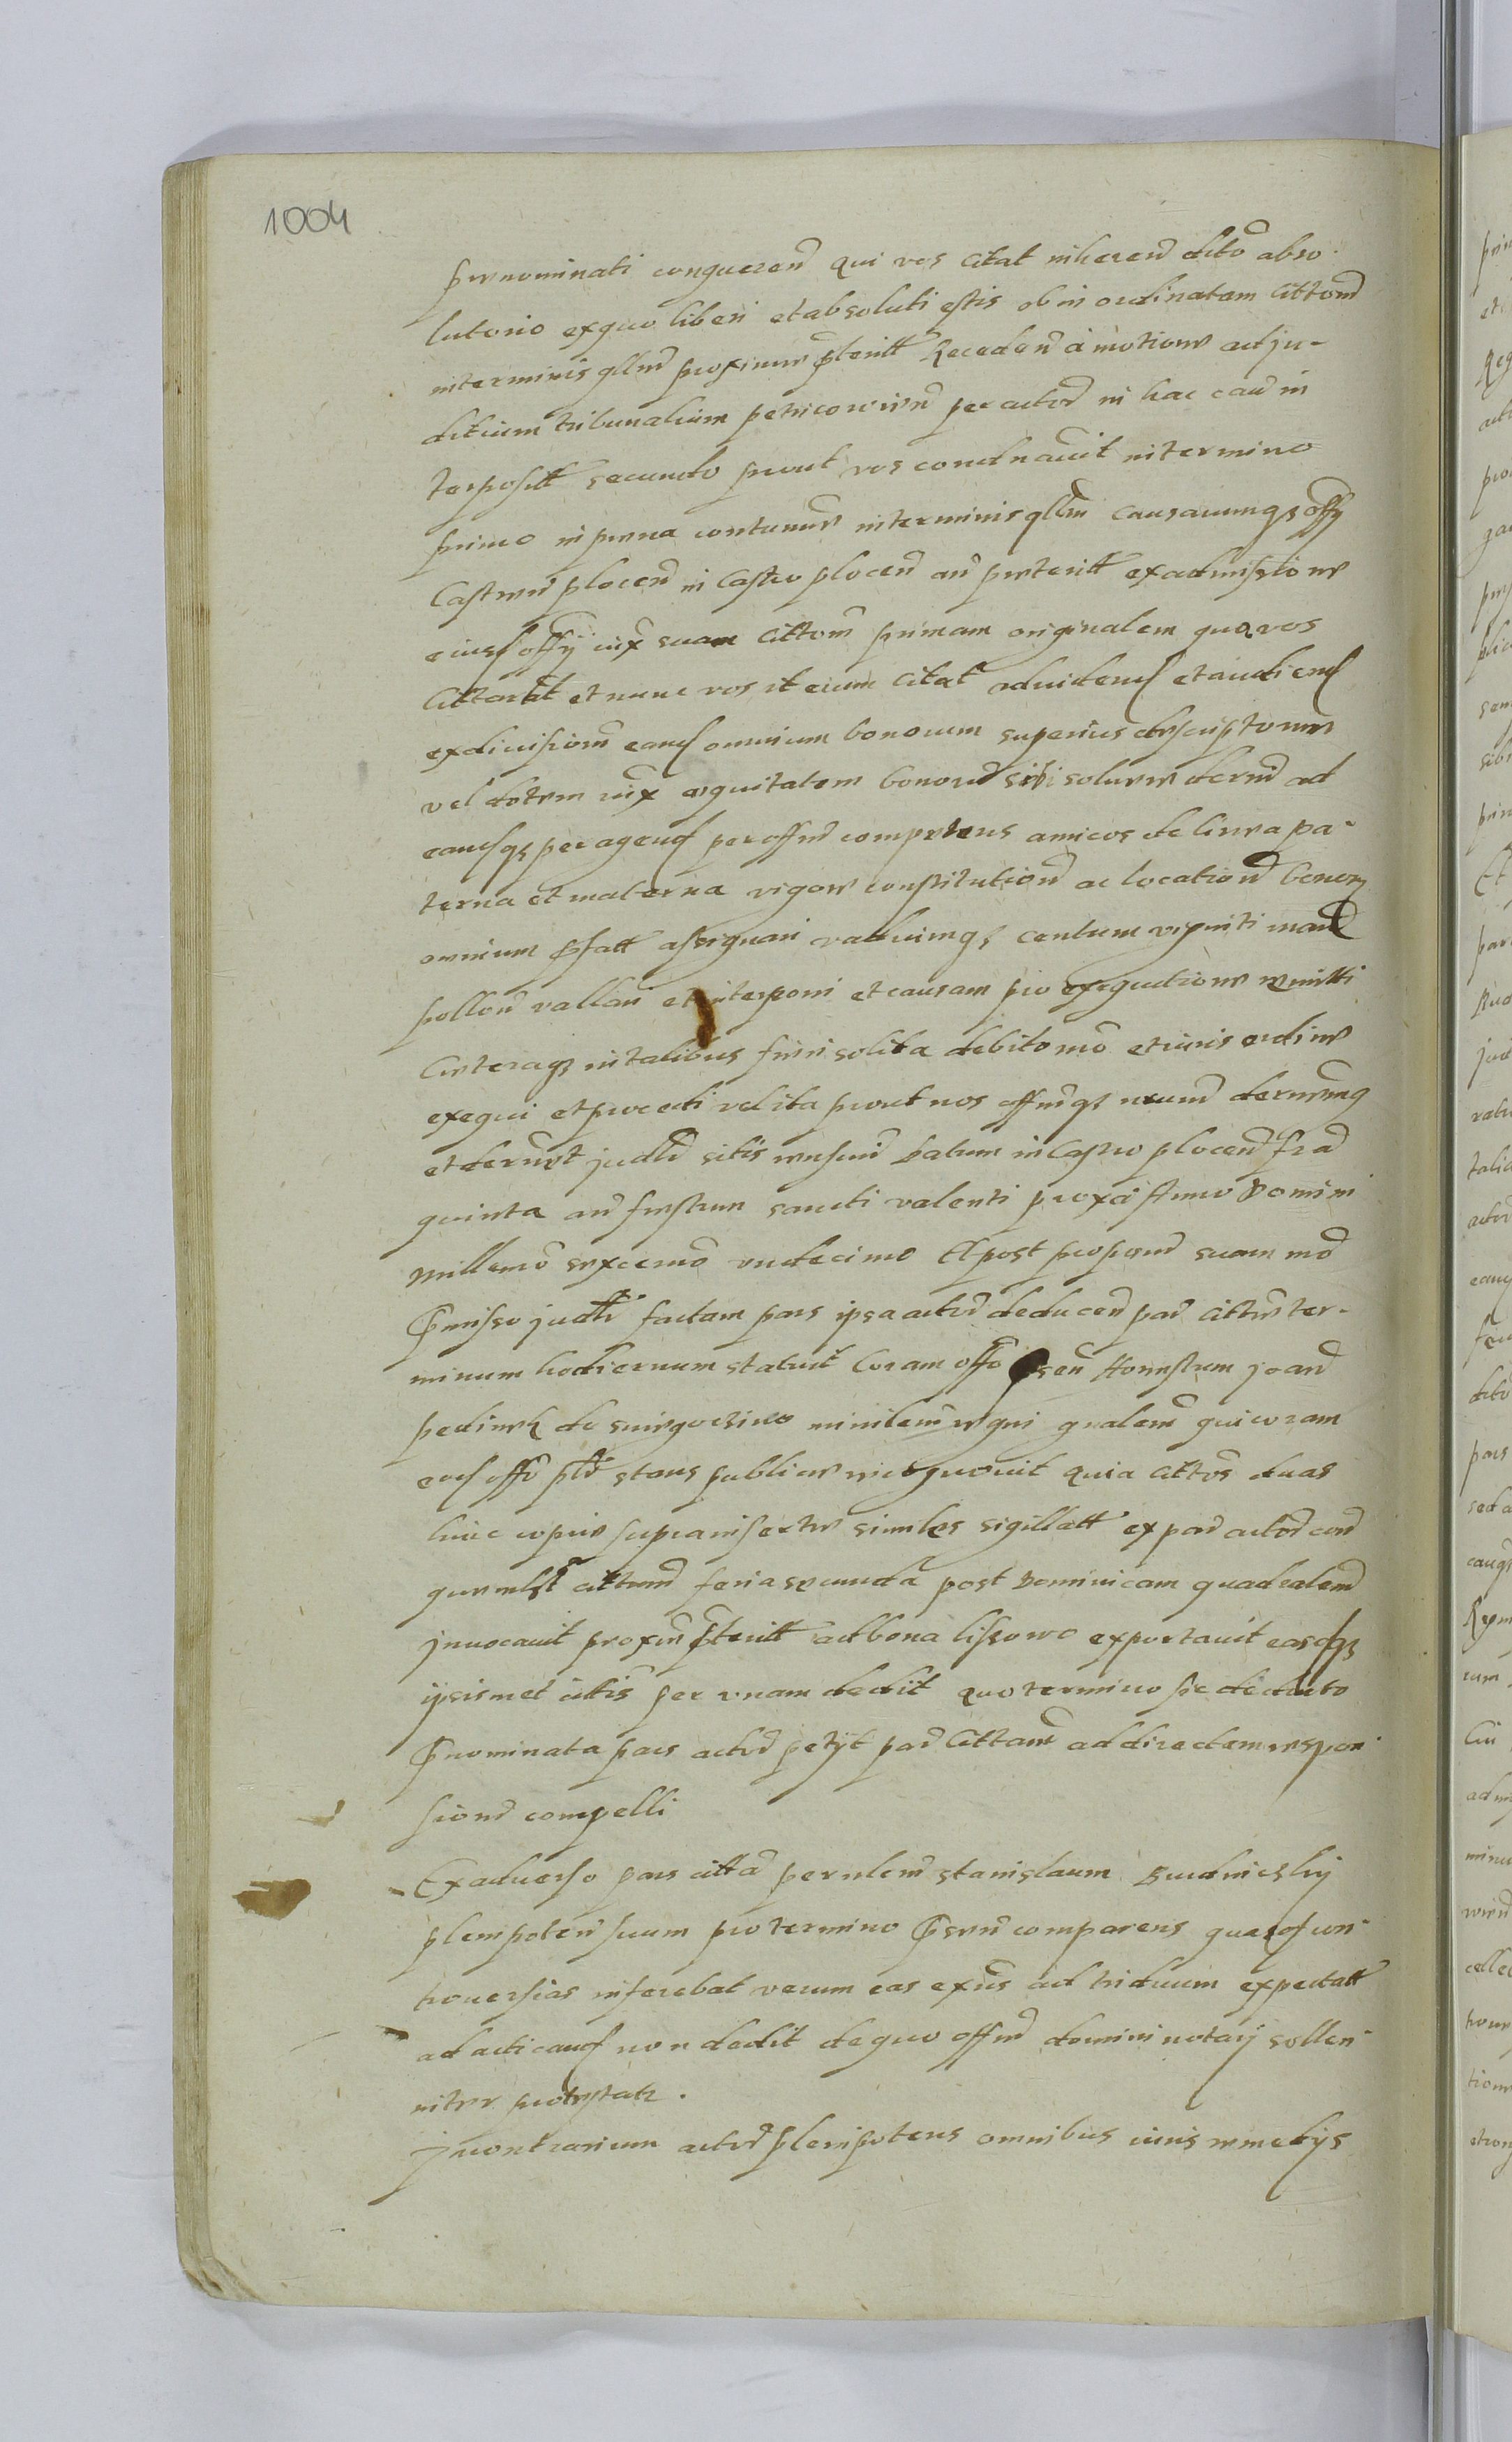 1004
prenominati conqueren qui vos citat inheren dcto abso-
lutorio ex quo liberi et absoluti estis ob inordinatam cittonem
in terminis qllm proxime pterit Receden a motione ad ju-
dicium tribunalium petricovien per actor in hac cau in
terposit secundo prout vos condnavit in termino
primo in pena contumae in terminis qllm causarumqz offy
Castren plocen in Castro plocen an preterit ex admissione
eiusd offy iux suam cittom primam originalem qua vos
Cittavit et nunc vos iterum citat ad vidend et audiend
ex divisiom eand omnium bonorum superius descriptorum
vel dotem iux equitatem bonor sibi solvere decrni ad
eandqz peragend per offm competens amicos de linea pa-
terna et materna vigore constitution ac location bonorz
omnium pfatt assignari vadiumqz centum viginti marc
pollon vallari et interponi et causam pro exequutione remitti
Ceteraqz in talibus fieri solita debito mo et iuris ordine
exequi et procedi vel ita prout nos offmqz nrum decreverimg
et decrevet judlr sitis respnri Datum in Castro plocen fra
quinta an festum sancti valenti proxa Anno Domini
millemo sexcemo undecimo Et post propoem suam mo
Pmisso judlr factam pars ipsa actor deducen par cittm ter-
minum hodiernum statuit Coram offo psen Honestum joan
pedinek de snirgocino minilem regni gnalem qui coram
eod offo plr stans publice recognovit quia cittos duas
huic copie suprainserte similes sigillatt ex par actor con
querulst cittum feria secunda post Dominicam quadralem
jnvocavit proxim pterit ad bona lissowo exportavit easdqz
ipsismet cittis per vnam dedit quo termino sic deducto
Pnominata pars actor petyt par Cittam ad directam respon-
sionem compelli
Ex adverso pars citta per nlem stanislaum Rudnicskij
plenipoten suum pro termino Psen comparens quasd con-
troversias inferebat verum eas exus ad triduum expectatt
ad acticand non dedit de quo offm domini notarij sollen-
niter protestatr.
jn contrarium actor plenipotens omnibus iuris remedijs